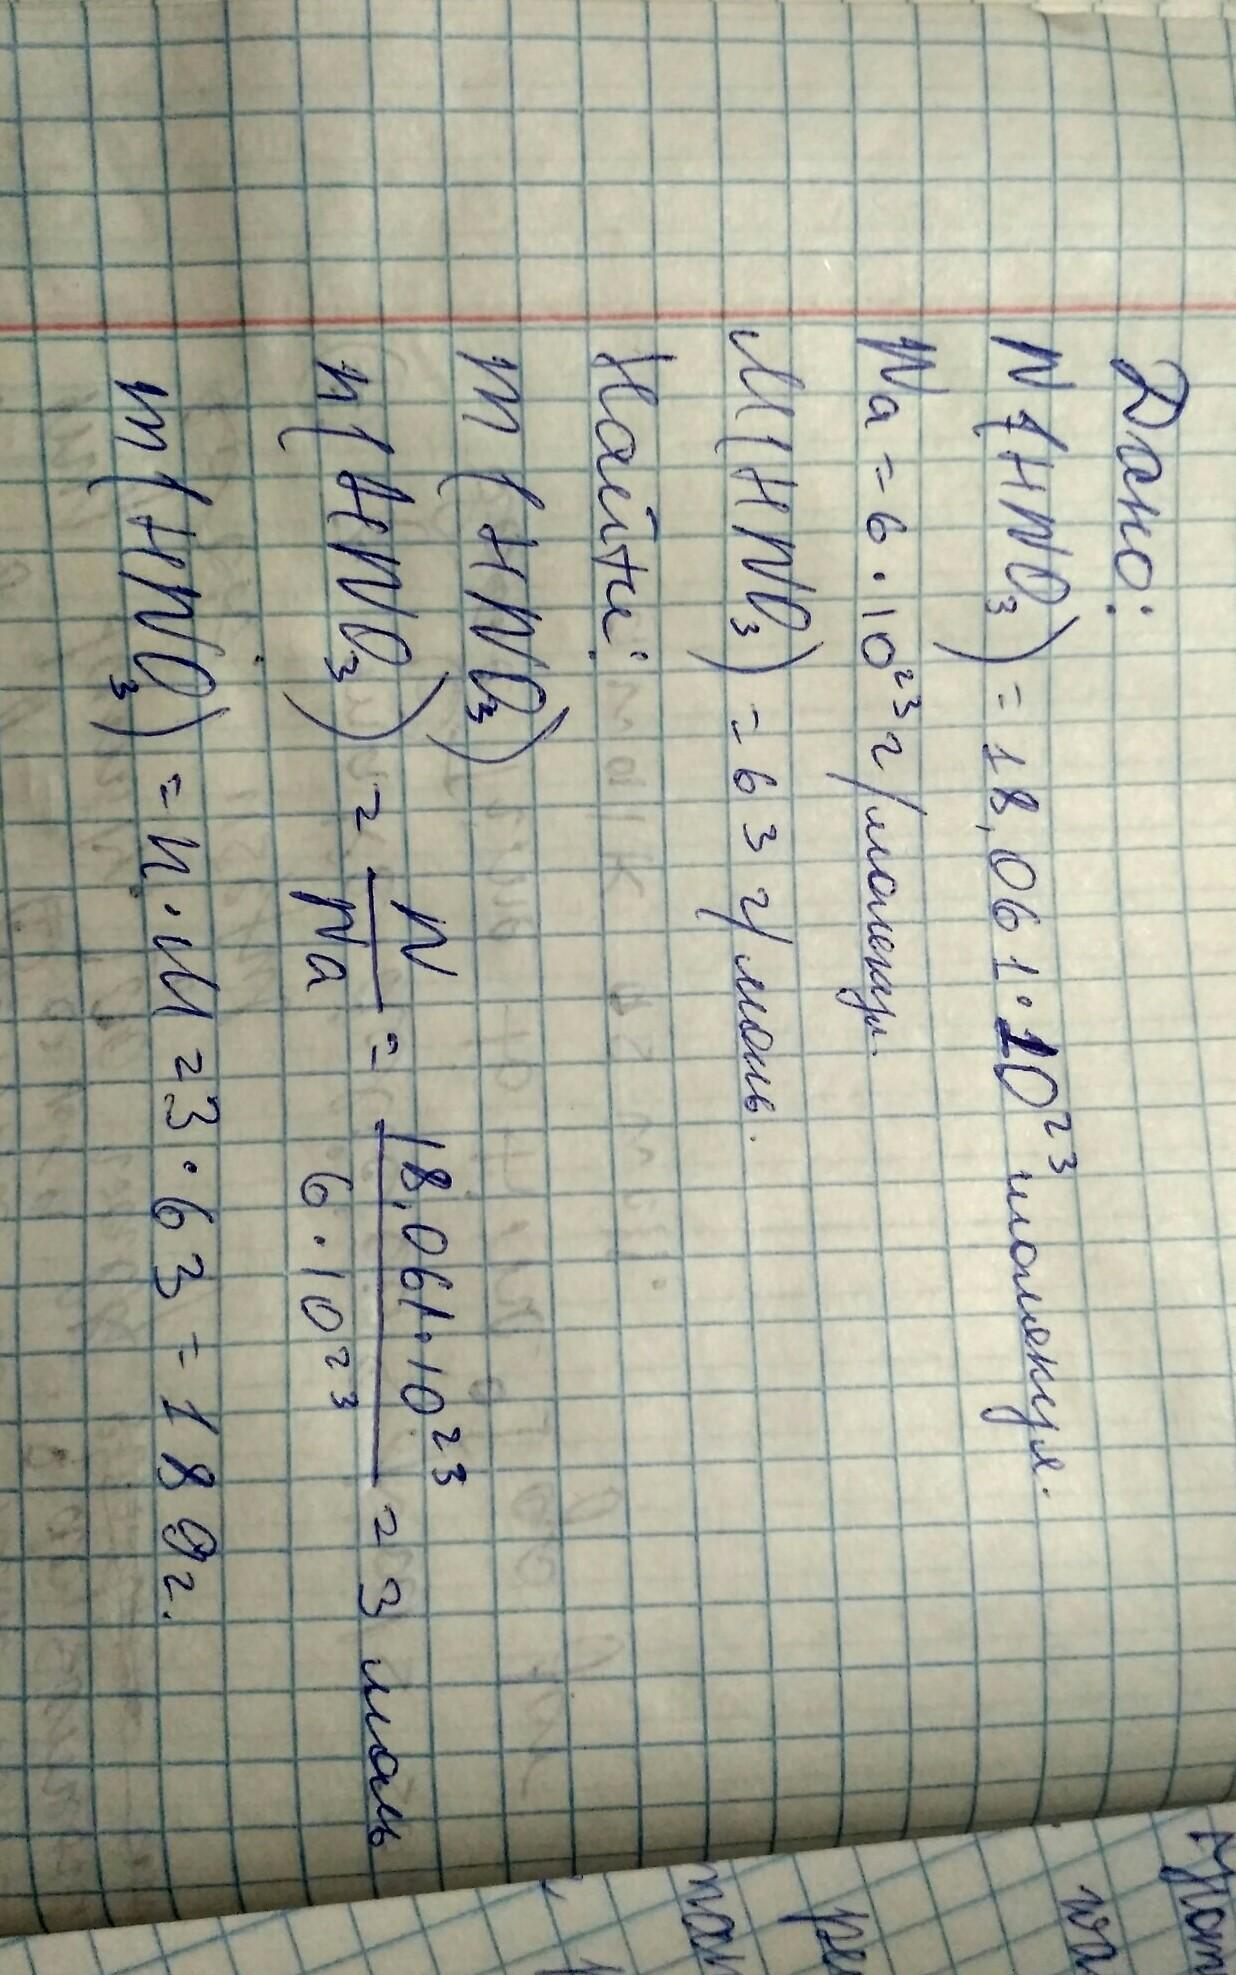 Дано:
N(HNO₃) = 18,061·10²³ молекул.
Na = 6·10²³ г/молекул.
M(HNO₃) = 63 г/моль.
Найти:
m(HNO₃)
n(HNO₃) = N/Na = 18,061·10²³/6·10²³ = 3 моль
m(HNO₃) = n·M = 3·63 = 189г.